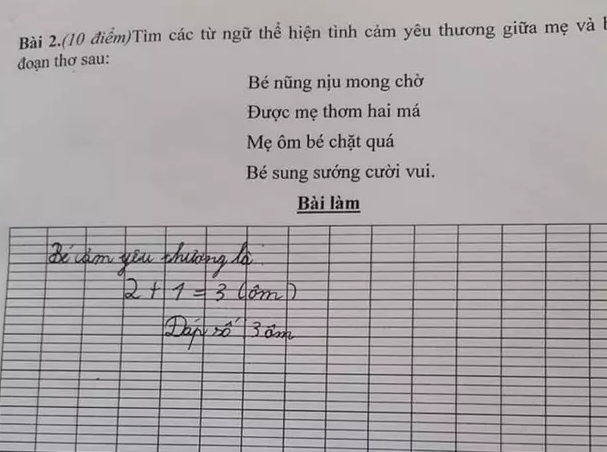 Bài 2.(10 điểm)Tìm các từ ngữ thể hiện tình cảm yêu thương giữa mẹ và
đoạn thơ sau:
Bé nũng nịu mong chờ
Được mẹ thơm hai má
Mẹ ôm bé chặt quá
Bé sung sướng cười vui.
Bài làm
Bé cảm yêu thương là
2 + 1 = 3 (ôm)
Đáp số 3 ôm